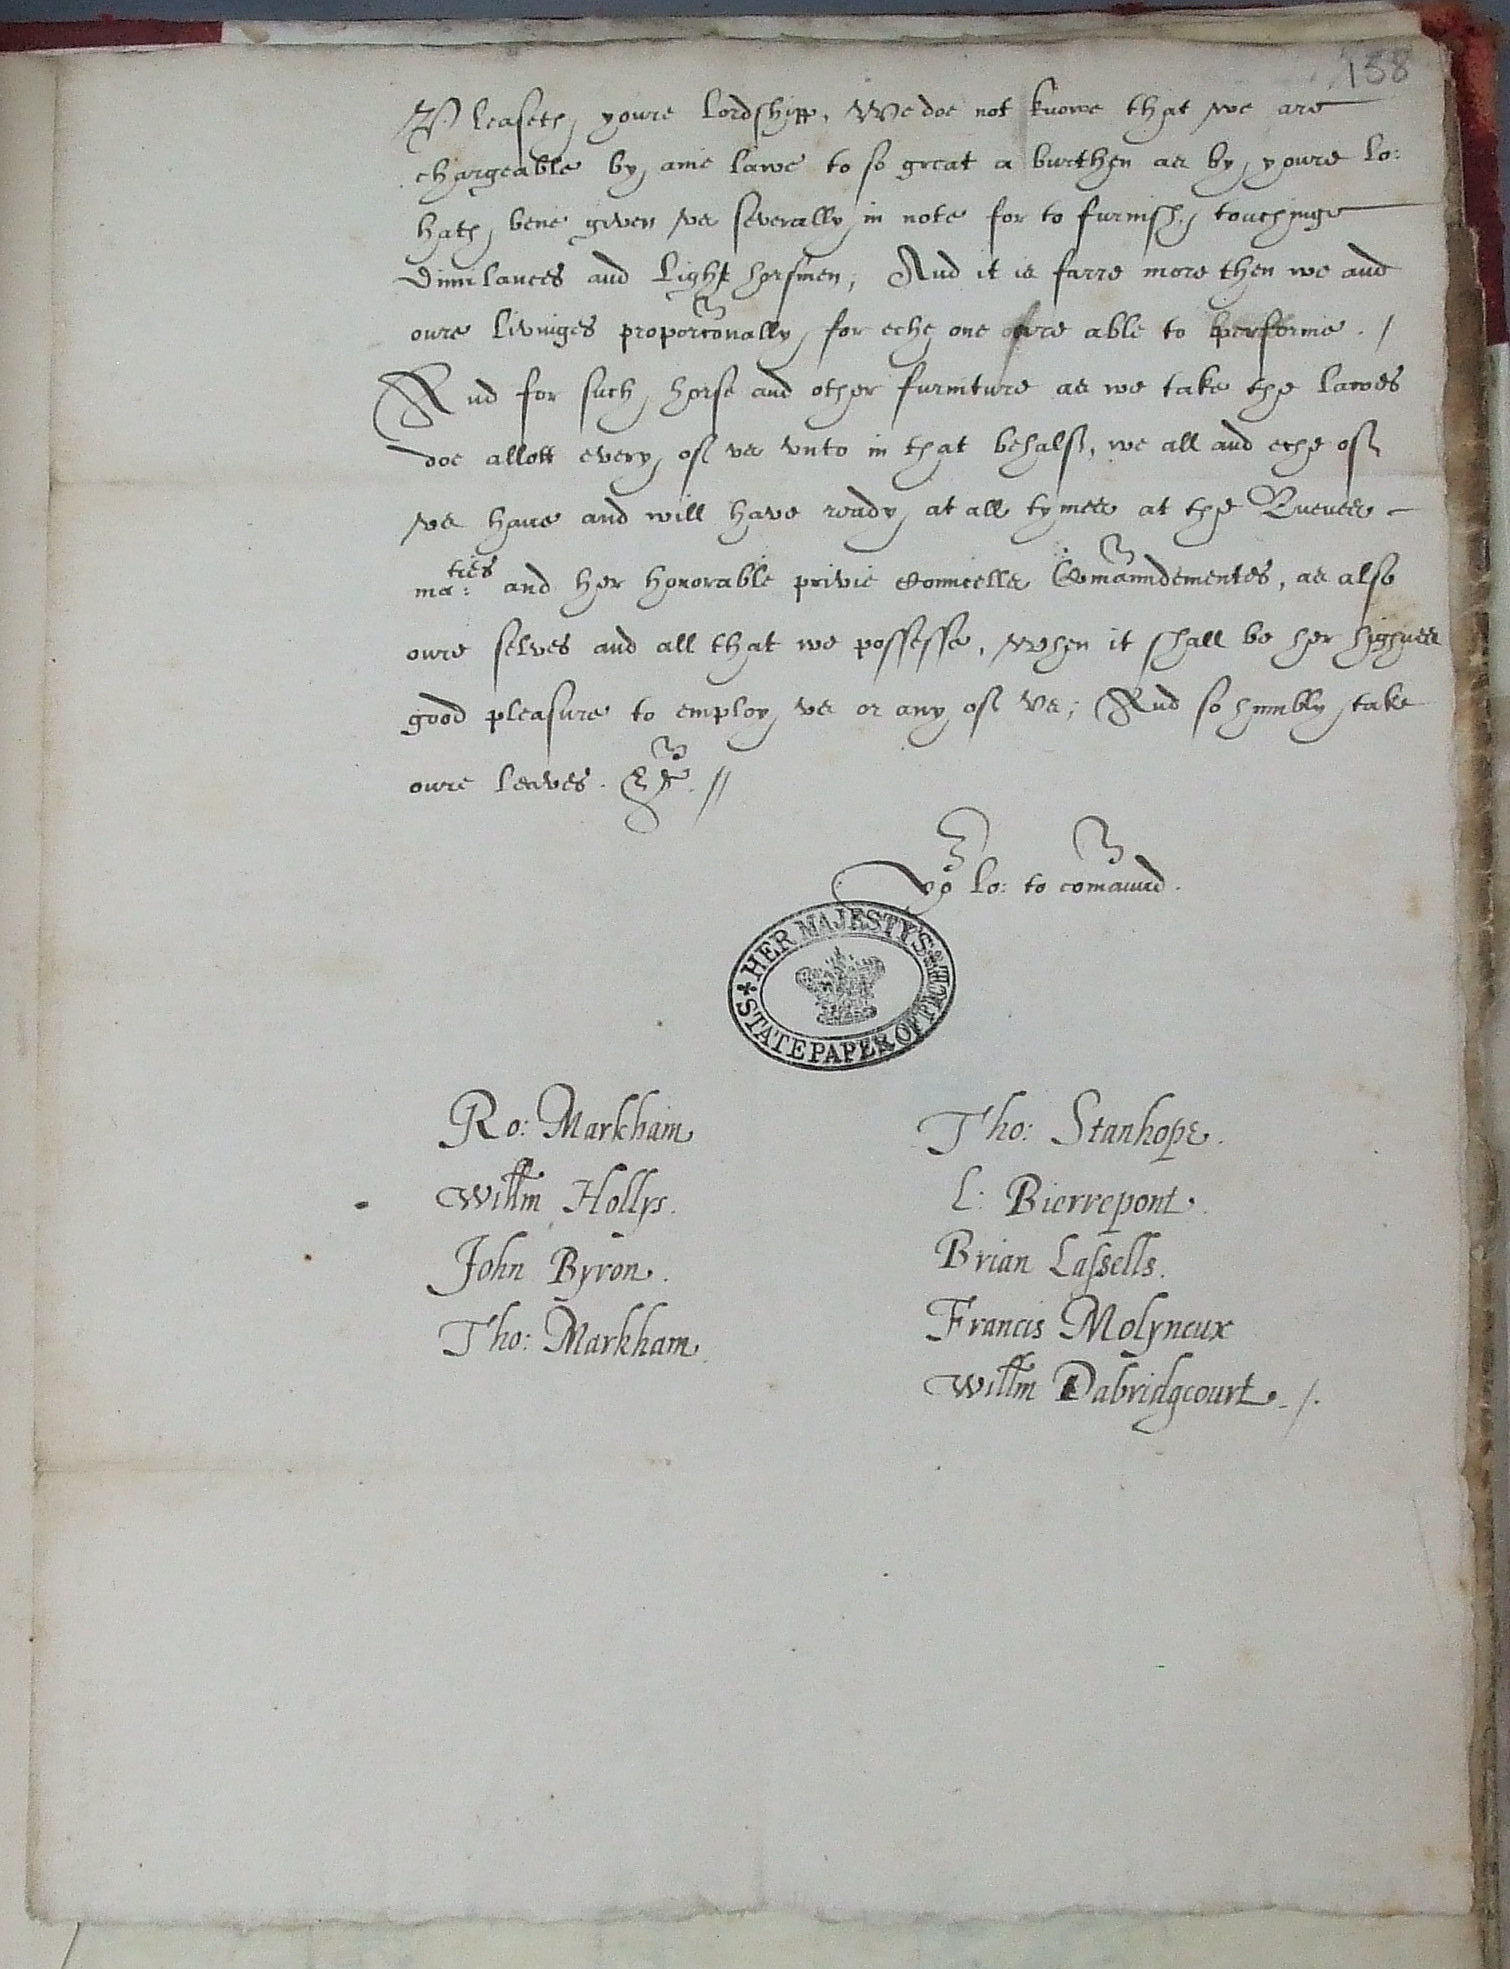 158
Pleaseth youre Lordshipp, We doe not knowe that we are
chargeable by anie lawe to so great a burthen as by youre lo:
hath bene given vs severally in note for to furnish, touchinge
Dimilances and Light horsmen, And it is farre more then we and
oure livinges proporconally, for eche one are able to performe ./
And for such horse and other furniture as we take the lawes
doe allott every of vs vnto in that behalf, we all and eche of
vs haue and will have ready at all tymes at the Quenes
ma:ties and her honorable privie Councells Comanndementes, as also
oure selves and all that we possesse, when it shall be her highnes
good pleasure to employ vs or any of vs; And so humbly take
oure leaves. &c. //
Yor lo: to comaund.
HER MAJESTY'S STATE PAPER OFFICE
Ro: Markham Tho: Stanhope.
Willm Hollys. L: Pierrepont.
John Byron. Brian Lassells.
Tho: Markham. Francis Molyneux
Willm Dabridgcourt ./.